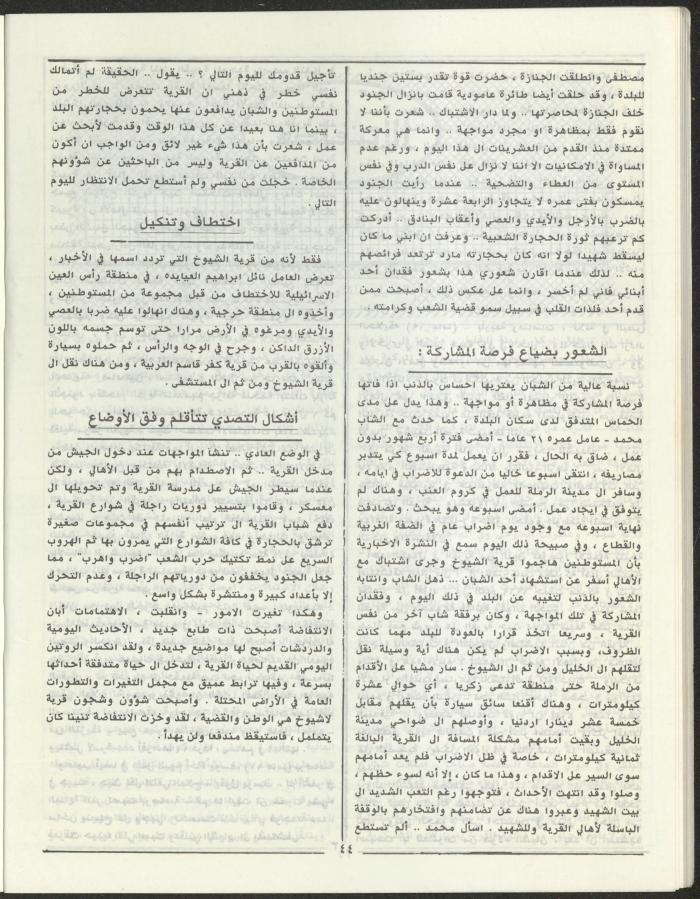 مصطفى وانطلقت الجنازة ، حضرت قوة تقدر بستين جنديا
للبلدة ، وقد حلقت أيضا طائرة عامودية قامت بانزال الجنود
خلف الجنازة لمحاصرتها .. ولما دار الاشتباك .. شعرت بأننا لا
نقوم فقط بمظاهرة او مجرد مواجهة .. وانما هي معركة
ممتدة منذ القدم من العشرينات ال هذا اليوم ، ورغم عدم
المساواة في الامكانيات الا اننا لا نزال عل نفس الدرب وفي نفس
المستوى من العطاء والتضحية .. عندما رأيت الجنود
يمسكون بفتى عمره لا يتجاوز الرابعة عشرة وينهالون عليه
بالضرب بالأرجل والأيدي والعصي وأعقاب البنادق .. أدركت
كم ترعبهم ثورة الحجارة الشعبية .. وعرفت ان ابني ما كان
ليسقط شهيدا لولا انه كان بحجارته مارد ترتعد فرائصهم
منه .. لذلك عندما اقارن شعوري هذا بشعور فقدان أحد
أبنائي فاني لم أخسر ، وانما عل عكس ذلك ، أصبحت ممن
قدم أحد فلذات القلب في سبيل سمو قضية الشعب وكرامته .
الشعور بضياع فرصة المشاركة :
نسبة عالية من الشبان يعتريها احساس بالذنب اذا فاتها
فرصة المشاركة في مظاهرة أو مواجهة .. وهذا يدل عل مدى
الحماس المتدفق لدى سكان البلدة ، كما حدث مع الشاب
محمد - عامل عمره ٢١ عاما - أمضى فترة أربع شهور بدون
عمل ، ضاق به الحال ، فقرر ان يعمل لمدة اسبوع كي يتدبر
مصاريفه ، انتقى اسبوعا خاليا من الدعوة للاضراب في ايامه ،
وسافر ال مدينة الرملة للعمل في كروم العنب ، وهناك لم
يتوفق في ايجاد عمل . أمضى اسبوعه وهو يبحث . وتصادفت
نهاية اسبوعه مع وجود يوم اضراب عام في الضفة الغربية
والقطاع ، وفي صبيحة ذلك اليوم سمع في النشرة الاخبارية
بأن المستوطنين هاجموا قرية الشيوخ وجرى اشتباك مع
الأهالي أسفر عن استشهاد أحد الشبان ... ذهل الشاب وانتابه
الشعور بالذنب لتغيبه عن البلد في ذلك اليوم ، وفقدان
المشاركة في تلك المواجهة ، وكان برفقة شاب آخر من نفس
القرية ، وسريعا اتخذ قرارا بالعودة للبلد مهما كانت
الظروف، وبسبب الاضراب لم يكن هناك أية وسيلة نقل
لتقلهم ال الخليل ومن ثم ال الشيوخ . سار مشيا عل الأقدام
من الرملة حتى منطقة تدعى زكريا ، أي حوالي عشرة
كيلومترات ، وهناك أقنعا سائق سيارة بأن يقلهم مقابل
خمسة عشر دينارا اردنيا ، وأوصلهم ال ضواحي مدينة
الخليل وبقيت أمامهم مشكلة المسافة ال القرية البالغة
ثمانية كيلومترات ، خاصة في ظل الاضراب فلم يعد أمامهم
سوى السير عل الاقدام ، وهذا ما كان ، إلا أنه لسوء حظهم ،
وصلوا وقد انتهت الأحداث ، فتوجهوا رغم التعب الشديد ال
بيت الشهيد وعبروا هناك عن تضامنهم وافتخارهم بالوقفة
الباسلة لأهالي القرية وللشهيد . اسأل محمد .. ألم تستطع
تأجيل قدومك لليوم التالي ؟ .. يقول .. الحقيقة لم أتمالك
نفسي خطر في ذهني ان القرية تتعرض للخطر من
المستوطنين والشبان يدافعون عنها يحمون بحجارتهم البلد
، بينما انا هنا بعيدا عن كل هذا الوقت وقدمت لأبحث عن
عمل ، شعرت بأن هذا شيء غير لائق ومن الواجب ان أكون
من المدافعين عن القرية وليس من الباحثين عن شؤونهم
الخاصة . خجلت من نفسي ولم أستطع تحمل الانتظار لليوم
التالي .
اختطاف وتنكيل
فقط لأنه من قرية الشيوخ التي تردد اسمها في الأخبار ،
تعرض العامل نائل ابراهيم العيايده ، في منطقة رأس العين
الاسرائيلية للاختطاف من قبل مجموعة من المستوطنين ،
وأخذوه ال منطقة حرجية ، وهناك انهالوا عليه ضربا بالعصي
والأيدي ومرغوه في الأرض مرارا حتى توسم جسمه باللون
الأزرق الداكن ، وجرح في الوجه والرأس ، ثم حملوه بسيارة
وألقوه بالقرب من قرية كفر قاسم العربية ، ومن هناك نقل ال
قرية الشيوخ ومن ثم ال المستشفى .
أشكال التصدي تتأقلم وفق الأوضاع
في الوضع العادي .. تنشأ المواجهات عند دخول الجيش من
مدخل القرية .. ثم الاصطدام بهم من قبل الأهالي ، ولكن
عندما سيطر الجيش عل مدرسة القرية وتم تحويلها ال
معسكر ، وقاموا بتسيير دوريات راجلة في شوارع القرية ،
دفع شباب القرية ال ترتيب أنفسهم في مجموعات صغيرة
ترشق بالحجارة في كافة الشوارع التي يمرون بها ثم الهروب
السريع عل نمط تكتيك حرب الشعب "اضرب واهرب" ، مما
جعل الجنود يخففون من دورياتهم الراجلة ، وعدم التحرك
إلا بأعداد كبيرة ومنتشرة بشكل واسع .
وهكذا تغيرت الامور - وانقلبت ، الاهتمامات أبان
الانتفاضة أصبحت ذات طابع جديد ، الأحاديث اليومية
والدردشات أصبح لها مواضيع جديدة ، ولقد انكسر الروتين
اليومي القديم لحياة القرية ، لتدخل ال حياة متدفقة أحداثها
بسرعة ، وفيها ترابط عميق مع مجمل التغيرات والتطورات
العامة في الأراضي المحتلة . وأصبحت شؤون وشجون قرية
لاشيوخ هي الوطن والقضية ، لقد وخزت الانتفاضة تنينا كان
يتململ ، فاستيقظ مندفعا ولن يهدأ .
٤٤